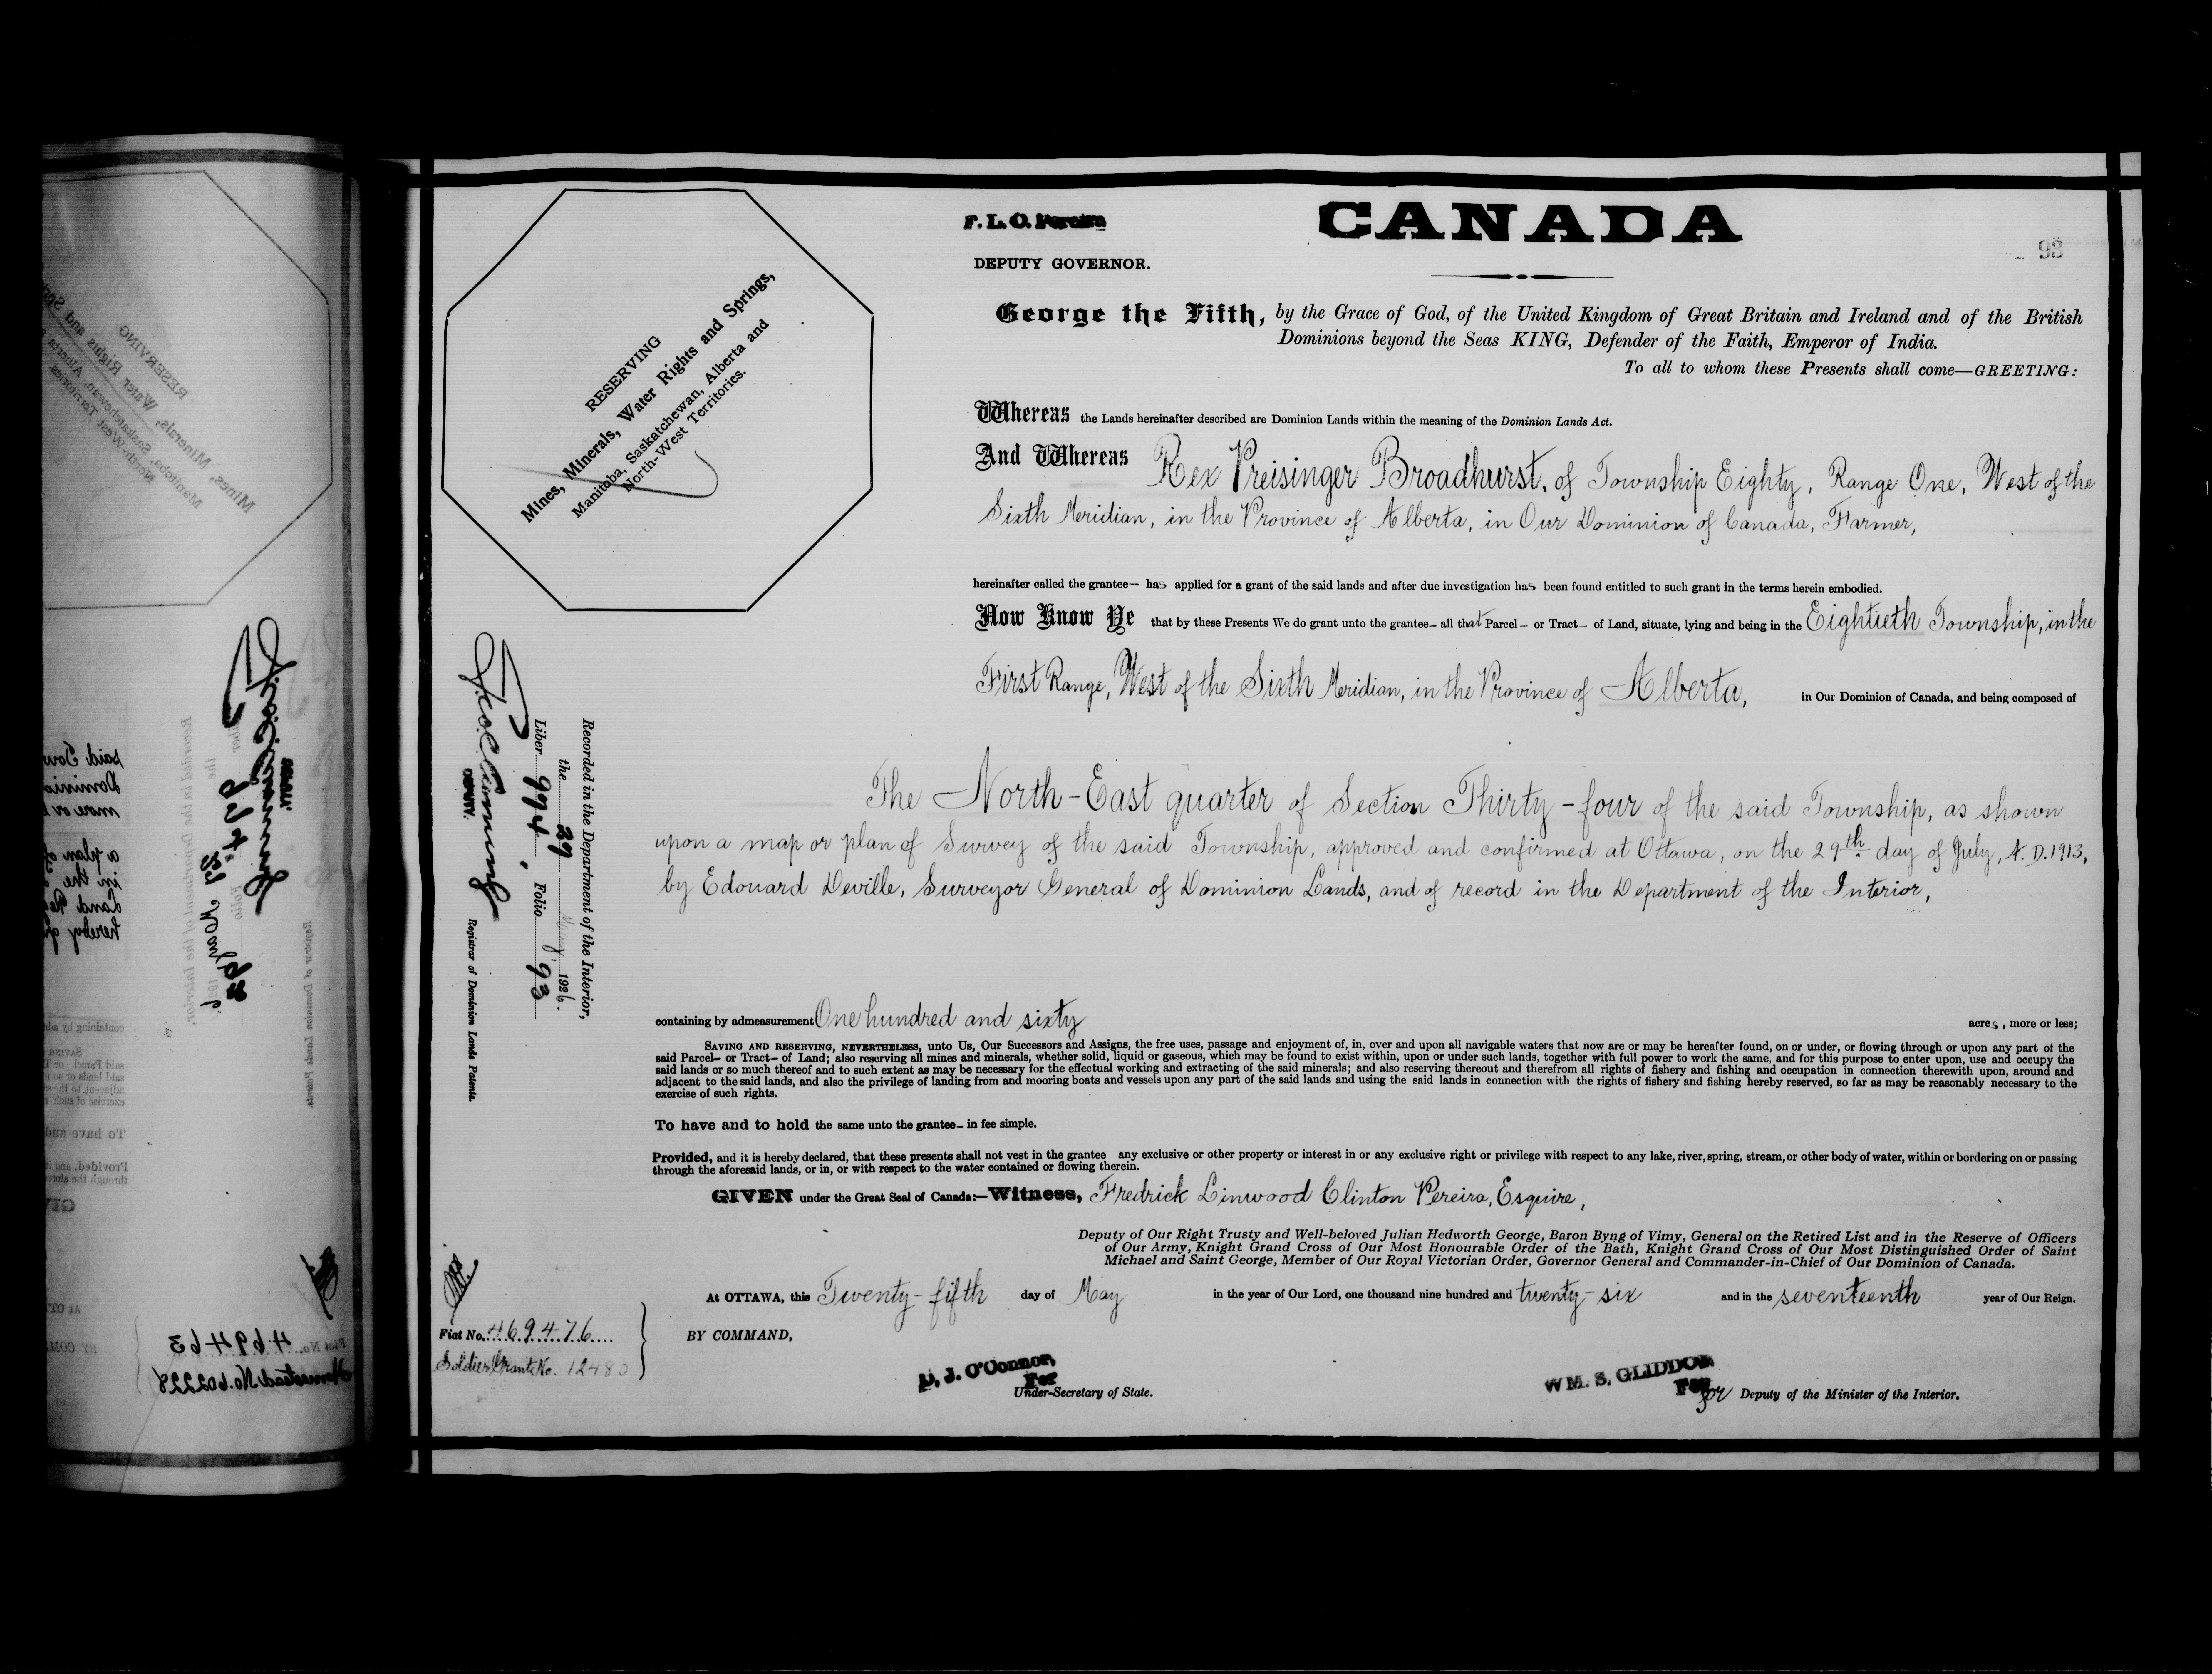 RESERVING
Mines, Minerals, Water Rights and Springs,
Manitoba, Saskatchewan, Alberta and
North-West Territories.
F. L. C. Pereira
DEPUTY GOVERNOR.
CANADA
93
George the Fifth, by the Grace of God, of the United Kingdom of Great Britain and Ireland and of the British
Dominions beyond the Seas KING, Defender of the Faith, Emperor of India.
To all to whom these Presents shall come—GREETING:
Whereas the Lands hereinafter described are Dominion Lands within the meaning of the Dominion Lands Act.
And Whereas Rex Preisinger Broadhurst, of Township Eighty, Range One, West of the
Sixth Meridian, in the Province of Alberta, in Our Dominion of Canada, Farmer,
hereinafter called the grantee— has applied for a grant of the said lands and after due investigation has been found entitled to such grant in the terms herein embodied.
Now Know Ye that by these Presents We do grant unto the grantee— all that Parcel— or Tract— of Land, situate, lying and being in the Eightieth Township, in the
First Range, West of the Sixth Meridian, in the Province of Alberta, in Our Dominion of Canada, and being composed of
The North-East quarter of Section Thirty-four of the said Township, as shown
upon a map or plan of Survey of the said Township, approved and confirmed at Ottawa, on the 29th day of July, A.D. 1913,
by Edouard Deville, Surveyor General of Dominion Lands, and of record in the Department of the Interior,
containing by admeasurement One hundred and sixty acres, more or less;
SAVING AND RESERVING, NEVERTHELESS, unto Us, Our Successors and Assigns, the free uses, passage and enjoyment of, in, over and upon all navigable waters that now are or may be hereafter found, on or under, or flowing through or upon any part of the
said Parcel— or Tract— of Land; also reserving all mines and minerals, whether solid, liquid or gaseous, which may be found to exist within, upon or under such lands, together with full power to work the same, and for this purpose to enter upon, use and occupy the
said lands or so much thereof and to such extent as may be necessary for the effectual working and extracting of the said minerals; and also reserving thereout and therefrom all rights of fishery and fishing and occupation in connection therewith upon, around and
adjacent to the said lands, and also the privilege of landing from and mooring boats and vessels upon any part of the said lands and using the said lands in connection with the rights of fishery and fishing hereby reserved, so far as may be reasonably necessary to the
exercise of such rights.
To have and to hold the same unto the grantee— in fee simple.
Provided, and it is hereby declared, that these presents shall not vest in the grantee any exclusive or other property or interest in or any exclusive right or privilege with respect to any lake, river, spring, stream, or other body of water, within or bordering on or passing
through the aforesaid lands, or in, or with respect to the water contained or flowing therein.
GIVEN under the Great Seal of Canada:—Witness, Fredrick Linwood Clinton Pereira, Esquire,
Deputy of Our Right Trusty and Well-beloved Julian Hedworth George, Baron Byng of Vimy, General on the Retired List and in the Reserve of Officers
of Our Army, Knight Grand Cross of Our Most Honourable Order of the Bath, Knight Grand Cross of Our Most Distinguished Order of Saint
Michael and Saint George, Member of Our Royal Victorian Order, Governor General and Commander-in-Chief of Our Dominion of Canada.
At OTTAWA, this Twenty-fifth day of May in the year of Our Lord, one thousand nine hundred and twenty-six and in the seventeenth year of Our Reign.
BY COMMAND,
D. J. O'Connor,
For
Under-Secretary of State.
WM. S. GLIDDON
For
for Deputy of the Minister of the Interior.
Recorded in the Department of the Interior,
the 29 May 1926.
Liber 994, Folio 93
DEPUTY.
Registrar of Dominion Lands Patents.
Fiat No. 469476
Soldier Grant No. 12480
Fiat No. 469463
Homestead No. 602228